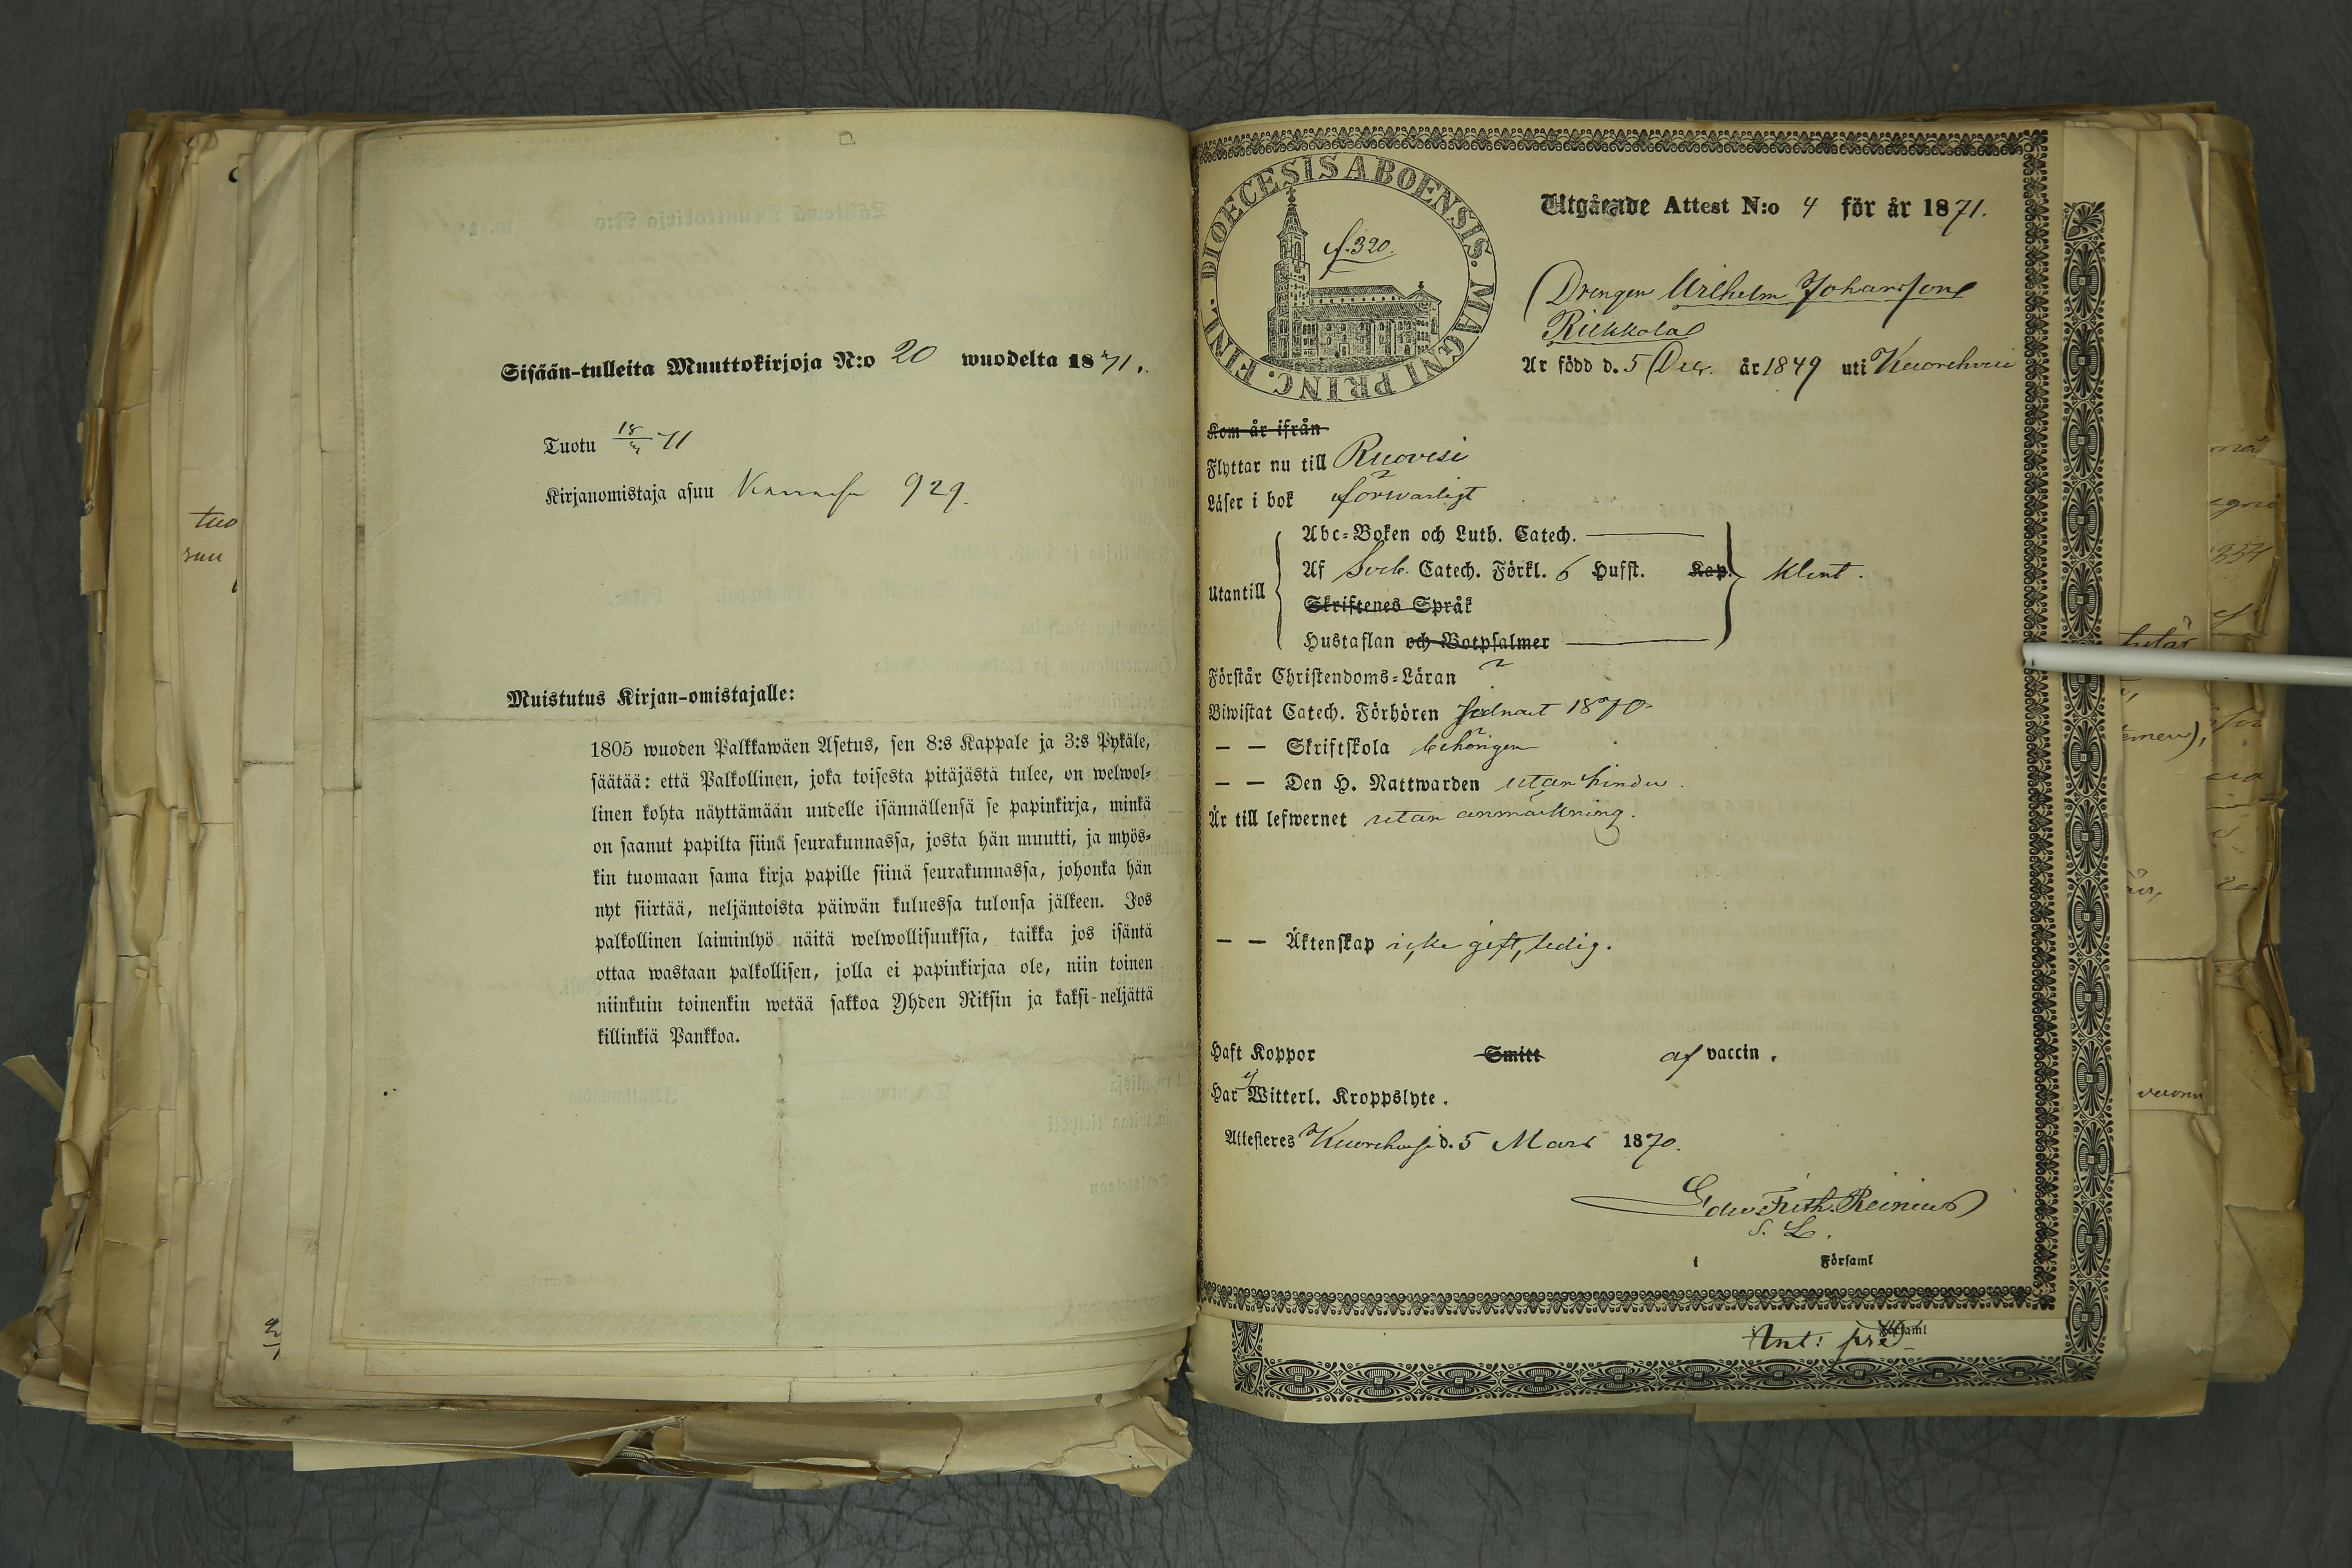 Sisään-tulleita Muuttokirjoja N:o 20 wuodelta 1871.
Tuotu 18/3 71
Kirjanomistaja asuu 929.
Muistutus Kirjan-omistajalle:
1805 wuoden Palkkawäen Asetus, sen 8:s Kappale ja 3:s Pykäle,
säätää: että Palkollinen, joka toisesta pitäjästä tulee, on welwol-
linen kohta näyttämään uudelle isännällensä se papinkirja, minkä
on saanut papilta siinä seurakunnassa, josta hän muutti, ja myös-
kin tuomaan sama kirja papille siinä seurakunnassa, johonka hän
nyt siirtää, neljäntoista päiwän kuluessa tulonsa jälkeen. Jos
palkollinen laiminlyö näitä welwollisuuksia, taikka jos isäntä
ottaa wastaan palkollisen, jolla ei papinkirjaa ole, niin toinen
niinkuin toinenkin wetää sakkoa Yhden Riksin ja kaksi-neljättä
killinkiä Pankkoa.
DIOECESIS ABOENSIS. MAGNI PRINC. FINL.
f. 320.
Utgående Attest N:o 4 för år 1871.
Drengen Wilhelm Johansson
Riekkola
Är född d. 5 Dec. år 1849 uti Kuorehvesi
Kom år ifrån
Flyttar nu till Ruovesi
Läser i bok försvarligt
Abc-Boken och Luth. Catech.
Utantill
Af Sveb. Catech. Förkl. 6 Hufst. Kap. klent.
Skriftenes Språk
Hustaflan och Botpsalmer
Förstår Christendoms-Läran
Biwistat Catech. Förhören sednast 1870
— — Skriftskola behörigen
— — Den H. Nattwarden utan hinder.
Är till lefwernet utan anmärkning.
— — Äktenskap icke gift, ledig.
Haft Koppor Smitt af vaccin.
Har ej Witterl. Kroppslyte.
Attesteres Kuorehvesi d. 5 Mars 1870.
Edw. Frith. Reinius
S. L.
i Församl
Ant: pre
Församl